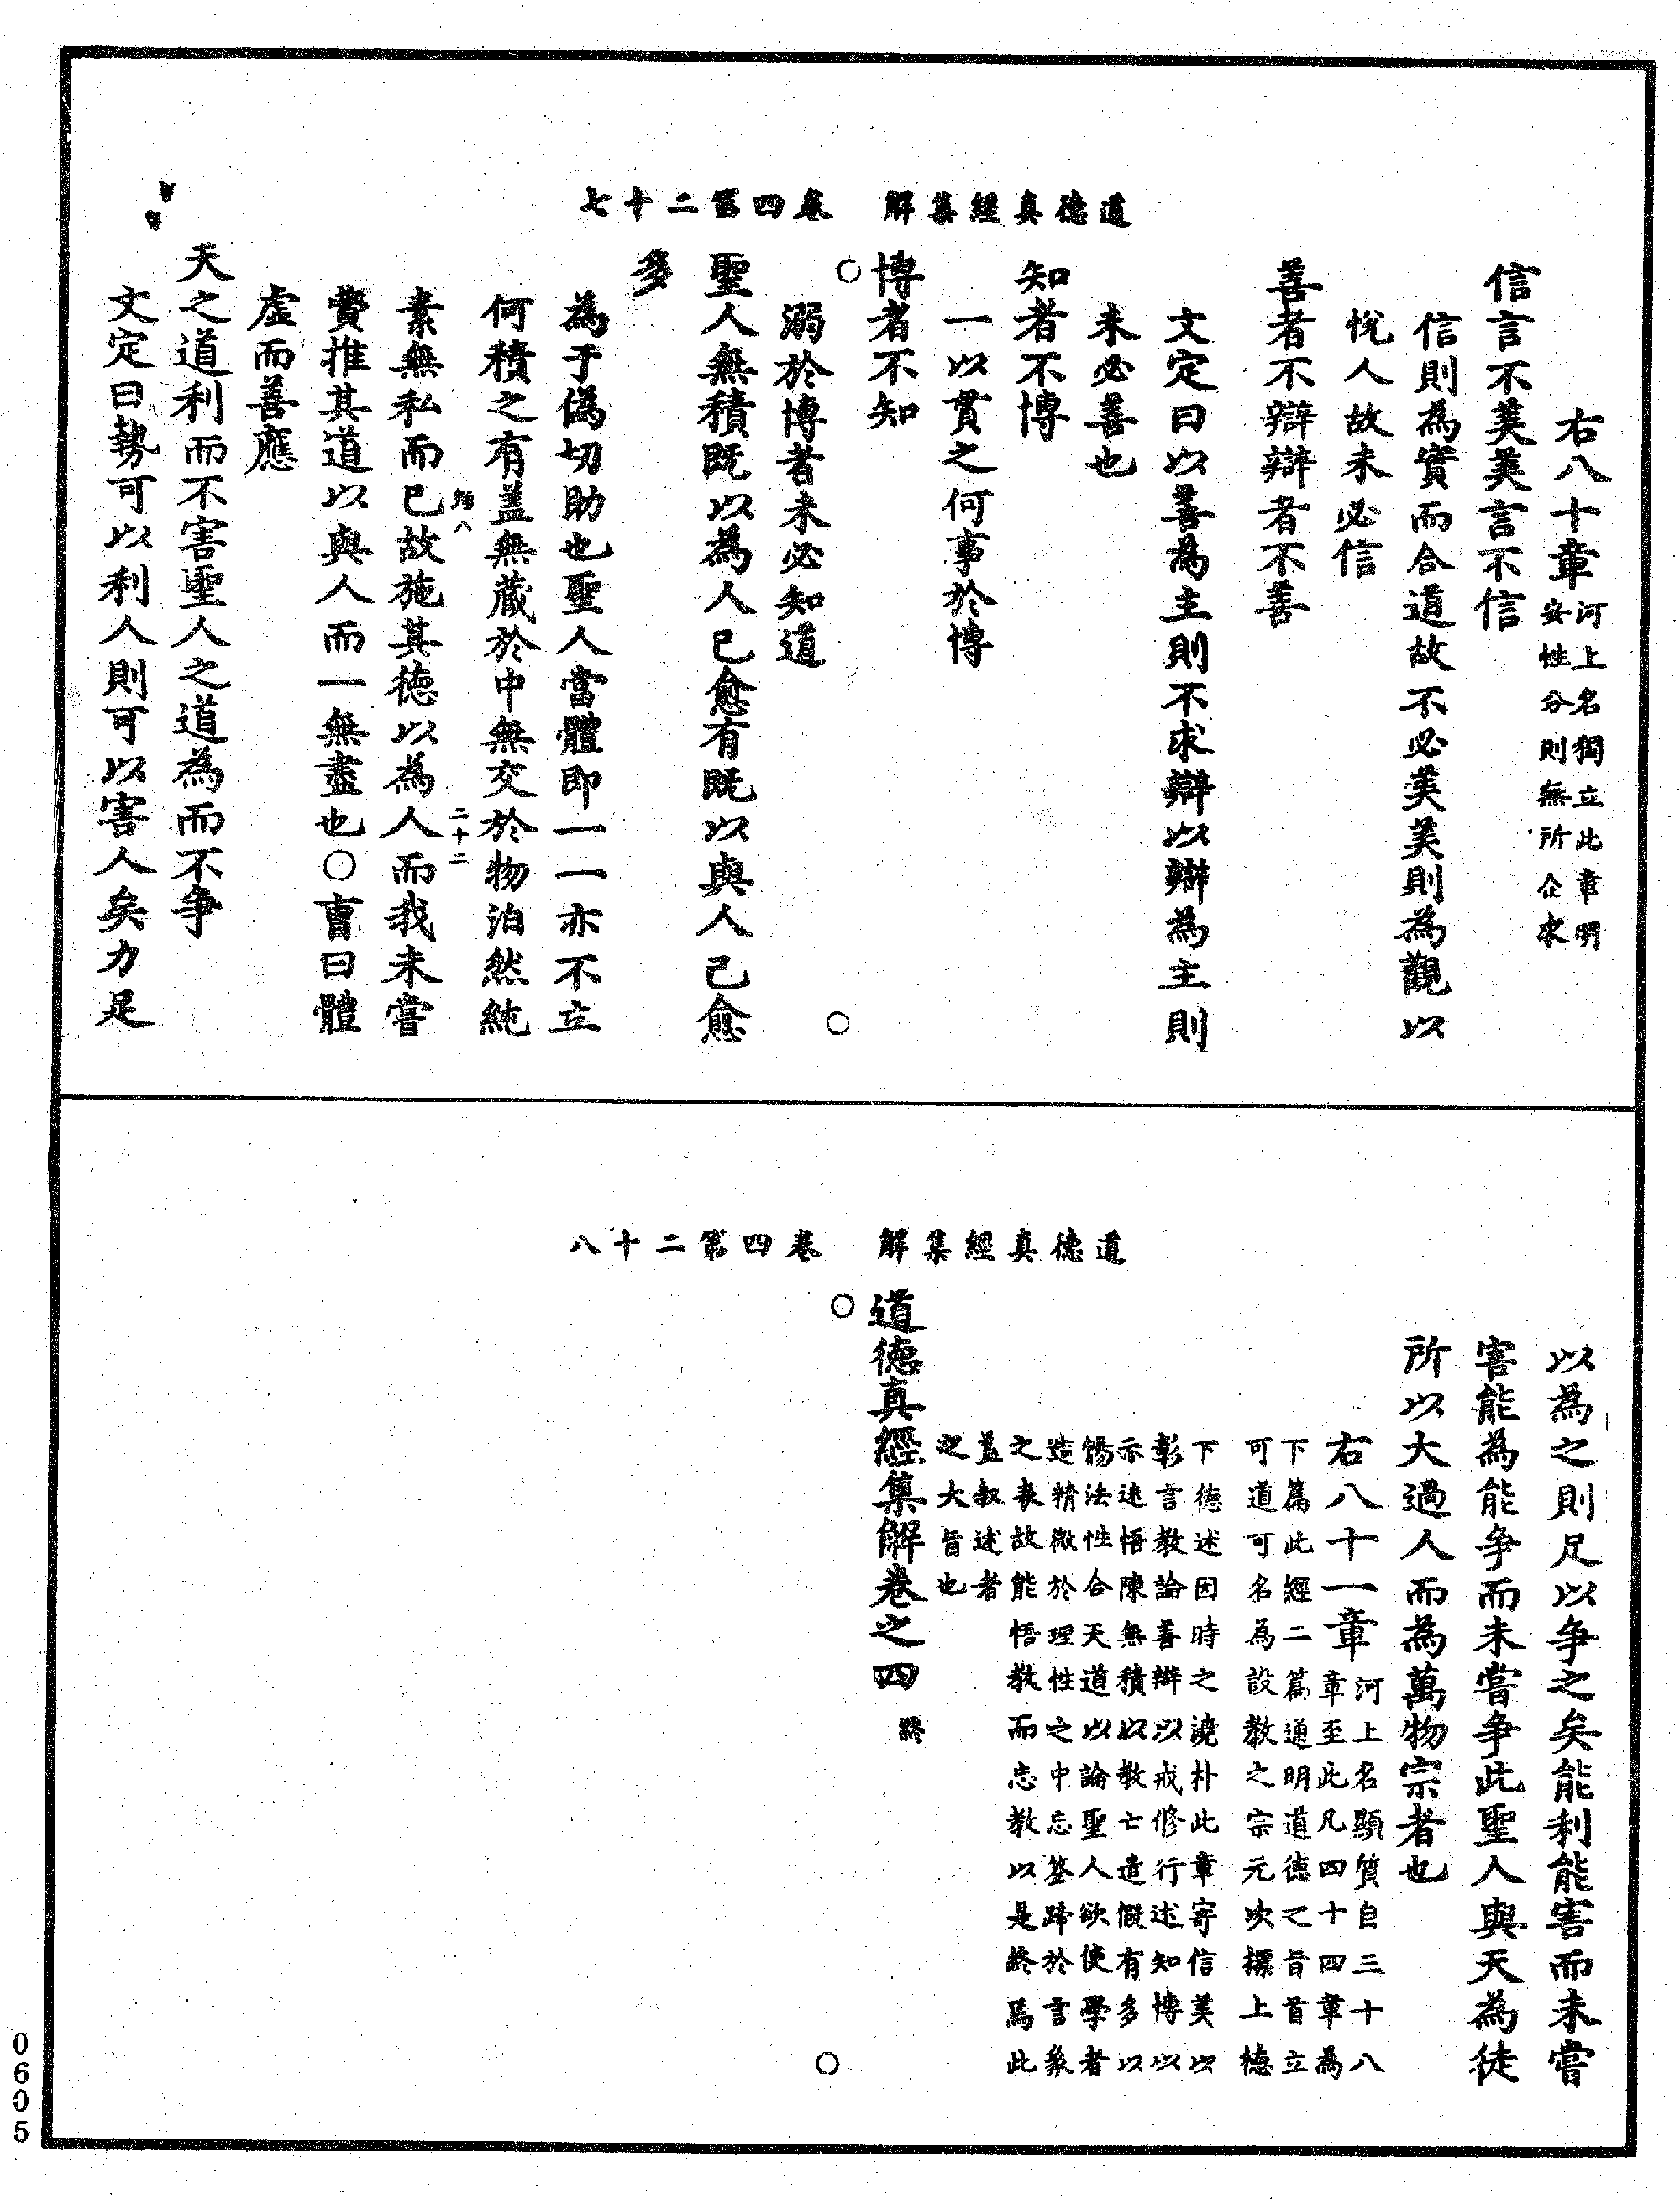 道德真經集解 卷四第二十七
右八十章河上名獨立此章明
安性分則無所企求
信言不美美言不信
信則為實而合道故不必美美則為觀以
悅人故未必信
善者不辯辯者不善
文定曰以善為主則不求辯以辯為主則
未必善也
知者不博
一以貫之何事於博
博者不知
溺於博者未必知道
聖人無積既以為人已愈有既以與人己愈
多
為于偽切助也聖人當體即一一亦不立
何積之有蓋無藏於中無交於物泊然純
素無私而已故施其德以為人而我未嘗
費推其道以與人而一無盡也○曹曰體
虛而善應
天之道利而不害聖人之道為而不爭
文定曰勢可以利人則可以害人矣力足
二十二
道德真經集解 卷四第二十八
以為之則足以爭之矣能利能害而未嘗
害能為能爭而未嘗爭此聖人與天為徒
所以大過人而為萬物宗者也
右八十一章河上名顯質自三十八
章至此凡四十四章為
下篇此經二篇通明道德之旨首立
可道可名為設教之宗元次摽上德
下德述因時之澆朴此章寄信美以
彰言教論善辯以戒修行述知博以
示迷悟陳無積以教亡遣假有多以
暢法性合天道以論聖人欲使學者
造精微於理性之中忘筌蹄於言象
之表故能悟教而忘教以是終焉此
蓋叙述者
之大旨也
道德真經集解卷之四終
0605